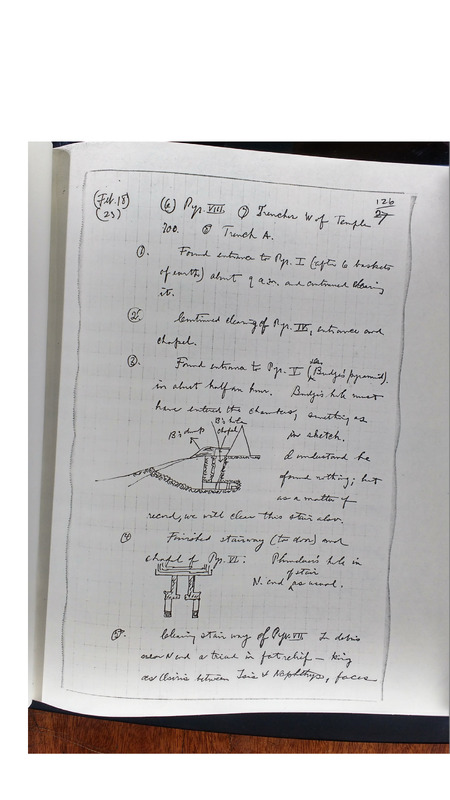 126
27
(Feb. 18) (6) Pyr. VIII. (7) Trenches W of Temple
(23) 300. (8) Trench A.
(1). Found entrance to Pyr. I (after 6 baskets
of earth) about 9 a.m. and continued clearing
it.
(2). Continued clearing of Pyr. IV, entrance and
chapel.
(3). Found entrance to Pyr. V (Budge's pyramid).
in about half an hour. Budge's hole must
have entered the chambers, something as
B's hole
in sketch.
B's dump chapel
I understand he
found nothing; but
as a matter of
record, we will clear this stair also.
(4) Finished stairway (to door) and
chapel of Pyr. VI. Plunderers' hole in
N. end of stair as usual.
(5). Clearing stairway of Pyr. VII. In debris
near N end a triad in flat relief — king
as Osiris between Isis & Nephthys, faces